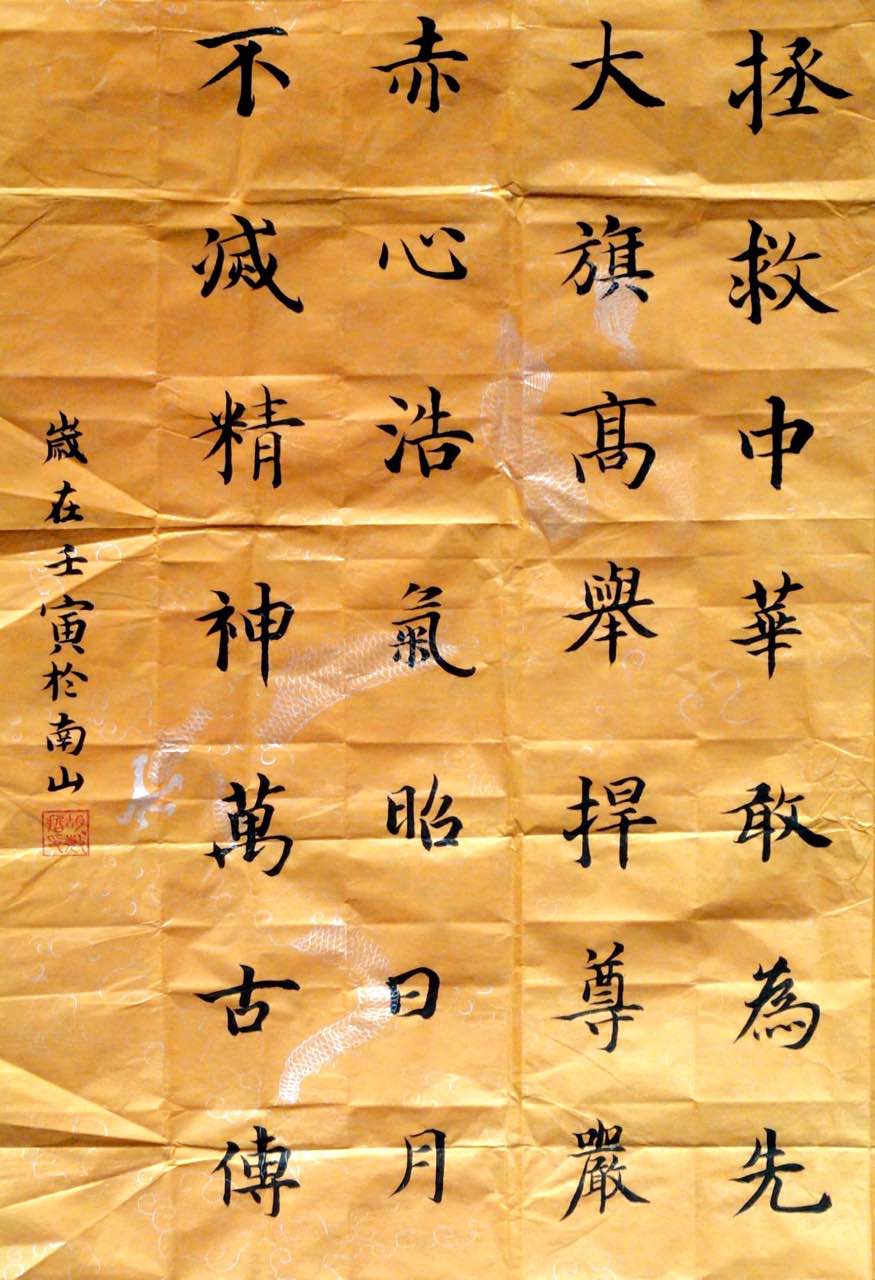 拯救中華敢為先
大旗高舉捍尊嚴
赤心浩氣昭日月
不滅精神萬古傳
歲在壬寅於南山